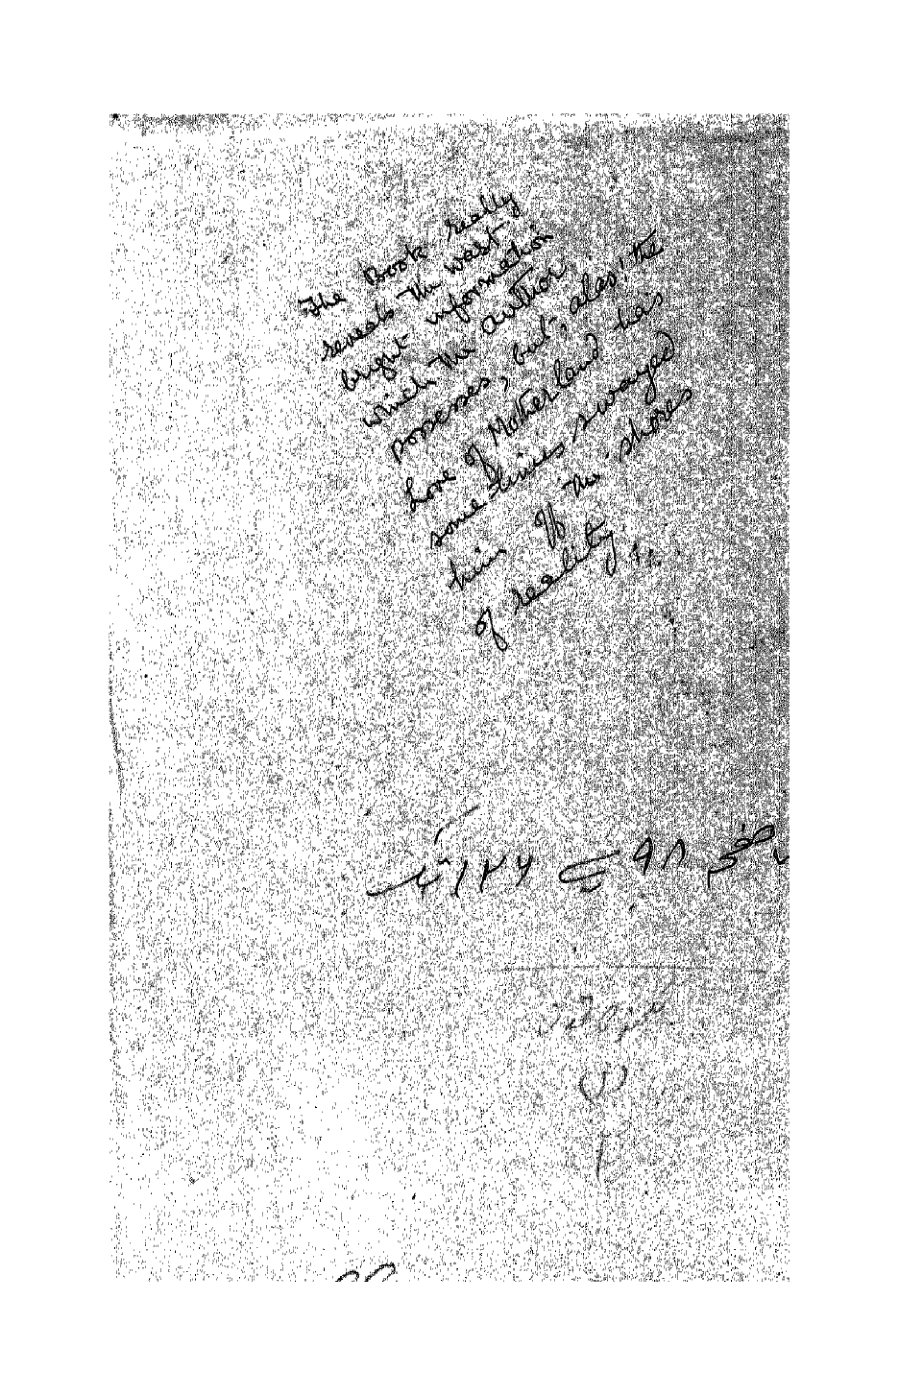 The Book really
reveals the wast
bright information
which the author
possesses, but, alas! the
Love of Motherland has
sometimes swayed
him off the shores
of reality.
صفحہ ۹۸ سے ۱۲۶ تک